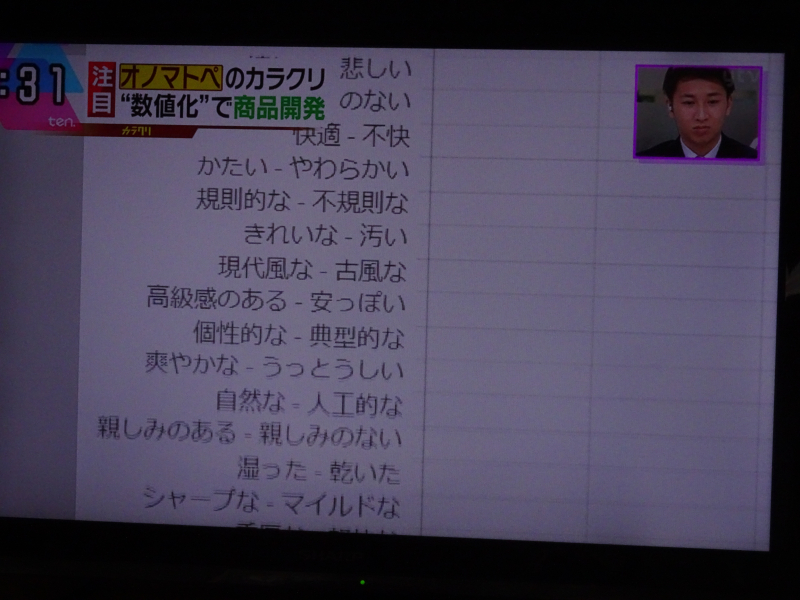 :31
ten.
注目
オノマトペのカラクリ
“数値化”で商品開発
カラクリ
ytv
悲しい
のない
快適 - 不快
かたい - やわらかい
規則的な - 不規則な
きれいな - 汚い
現代風な - 古風な
高級感のある - 安っぽい
個性的な - 典型的な
爽やかな - うっとうしい
自然な - 人工的な
親しみのある - 親しみのない
湿った - 乾いた
シャープな - マイルドな